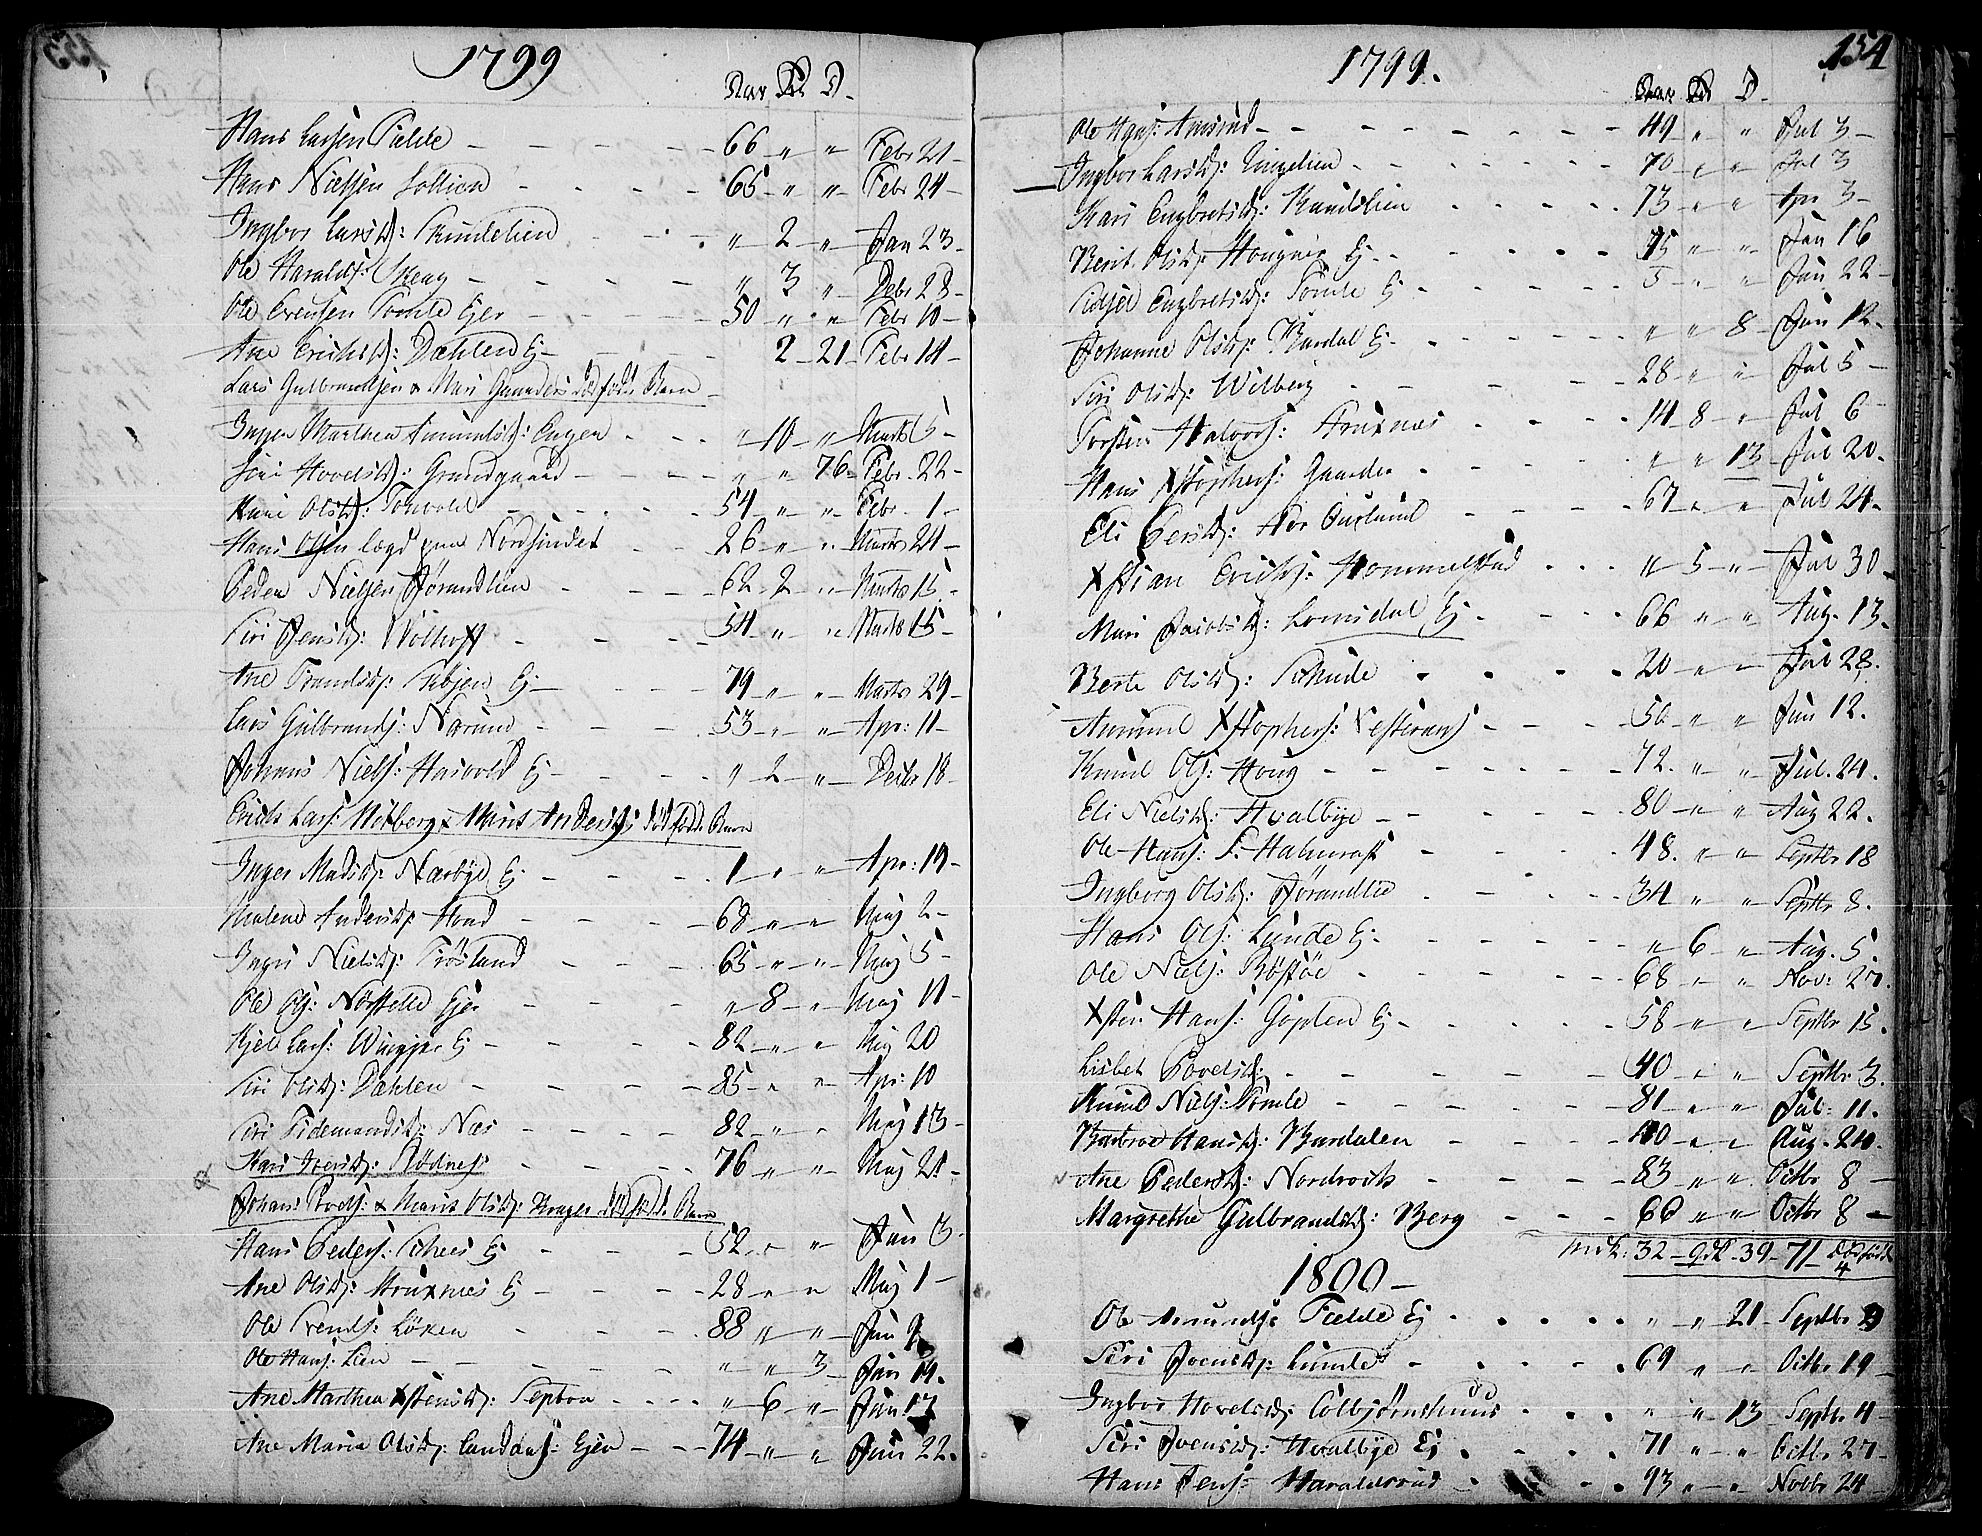 1799
Aar M D.
Hans Larsen Fielde 66 " " Febr 21
Hans Nielsen Lollien 65 " " Febr 24
Ingbor Larsd: Skindelien " 2 " Jan 23
Ole Haralds: Skeng " 3 " Debr 28
Ole Evensen Tomle Ejer 50 " " Febr 10
Ane Erichsd: Dæhlen Ej 2 21 Febr 14
Lars Gulbrandsen & Mari Gaarders dödfödt Barn
Inger Marthea Amundsd: Engen " 10 " Marts 5
Siri Hovelsd: Grundgaard " " 76 Febr 22
Kari Olsd: Tonvold 54 " " Febr 1
Hans Olsen lægd paa Nordsinden 26 " " Marts 24
Peder Nielsen Jörandlien 62 2 " Marts 15
Siri Jensd: Wolhoff 54 " " Marts 15
Ane Trondsd: Ej 79 " " Marts 29
Lars Gulbrands: Nærund 53 " " Apr: 11
Johans Niels: Hasvold Ej " 2 " Decbr 18
Erich Lars: Wilberg & Marit Andersd: dödfödt Barn
Inger Madsd: Nærbye Ej 1 " " Apr: 19
Malene Andersd: Hond 68 " " Maj 2
Ingri Nielsd: Frösland 65 " " Maj 5
Ole Ols: Nörstelie Ejer " 8 " Maj 11
Kjel Lars: Wingjer Ej 82 " " Maj 20
Siri Olsd: Dæhlen 85 " " Apr: 10
Siri Tidemandsd: Næs 82 " " Maj 13
Kari Iversd: Rödnes 76 " " Maj 21
Johans Povels: & Marit Olsd: Krager dödfödt Barn
Hans Peders: Schees Ej 52 " " Jan 3
Ane Olsd: Hruxnæs Ej 28 " " Maj 1
Ole Svends: Löken 88 " " Jun 9
Ole Hans: Lien " " 3 Jun 19.
Ane Marthea Xstensd: Septon " 6 " Jun 17
Ane Maria Olsd: Landaas: Ejer 74 " " Jun 22.
1799.
154
Aar M D.
Ole Hans: Amsrud 49 " " Jul 3
Ingbor Larsd: Lingelien 70 " " Jul 3
Kari Engbretsd: Kindelien 73 " " Apr 3
Berit Olsd: Hougner Ej 75 " " Jun 16
Kidsel Engbretsd: Tomle Ej 5 " " Jun 22
Johanne Olsd: Bardal Ej " " 8 Jun 12.
Siri Olsd: Wilberg 28 " " Jul 5
Torsten Halvors: Fruxnæs 14 8 " Jul 6
Hans Xstophers: Gaarder " " 13 Jul 20.
Eli Persd: Nör Ourlund 67 " " Jul 24.
Xstian Erichs: Hommelstad " 5 " Jul 30
Mari Jacobsd: Lomsdal Ej 66 " " Aug. 13.
Berte Olsd: Schude 20 " " Jul 28.
Amund Xstophers: Vestraas 56 " " Jun 12.
Knud Ols: Houg 72. " " Jul. 24.
Eli Nielsd: Hvalbye 80 " " Aug 22.
Ole Hans: S. Halmrast 48. " " Septbr 18
Ingborg Olsd: Jörandlie 34 " " Septbr 8.
Hans Ols: Lunde Ej " 6 " Aug. 5
Ole Niels: Röstöe 68 " " Nov: 27.
Xsten Hans: Goplen Ej 58 " " Septbr 15.
Lisbet Povelsd: 40 " " Septbr 3.
Knud Niels: Tomle 81 " " Jul: 11.
Barbroe Hansd: Bardalen 40 " " Aug. 20.
Ane Pedersd: Nordrvik 83 " " Octbr 8
Margrethe Gulbrandsd: Berg 66 " " Octbr 8
mdk: 32 qdk 39 - 71 dödfödt 4
1800
Ole Amunds: Fielde Ej " " 21 Septbr 9
Siri Joensd: Lunde 69 " " Octbr 19
Ingbor Hovelsd: Colbjörnshuus " " 13 Septbr 4
Siri Joensd: Hvalbye Ej 71 " " Octbr 27
Hans Jens: Haraldsrud 93 " " Nobbr 24